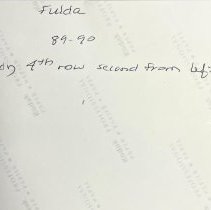 Fulda
89-90
4th row second from left